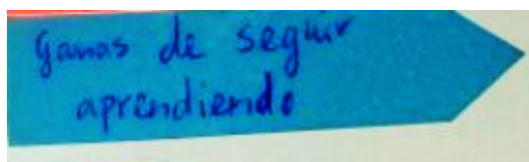 Ganas de seguir
aprendiendo